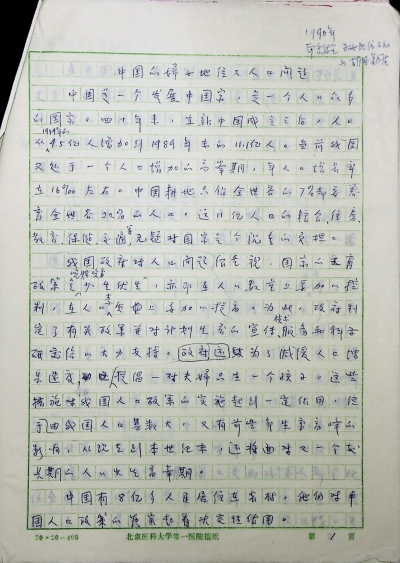 1990年
中国的妇女地位与人口问题
中国是一个发展中国家,是一个人口众多
的国家。四十年来,在新中国成立之后,人口
从1949年的4.5亿人增加到1989年末的11.1亿人。目前我国
又处于一个人口增加的高峰期,年人口增长率
在16‰左右。中国耕地只占全世界的7%却要养
育全世界22%的人口。这11亿人口的粮食、住房、
教育、保健、交通等无疑对国家是个沉重的负担。
我国政府对人口问题很重视,国家的生育
政策是"少生优生",亦即在人口数量上要加以控
制,在人口质量上要加以提高。为此,政府制
定了有关政策并对计划生育的宣传、技术服务和科学
研究给以大力支持。政府还为了减慢人口增
长速度,提倡一对夫妇只生一个孩子。这些
措施对我国人口政策的实施起到一定作用,但
由于我国人口基数大,又有前些年生育高峰的
影响,从现在到本世纪末,还将面对又一个
人口出生高峰期。
中国有8亿多人口居住在农村,他们对中
国人口政策的落实起着决定性作用。
20×20=400
北京医科大学第一医院稿纸
第 1 页